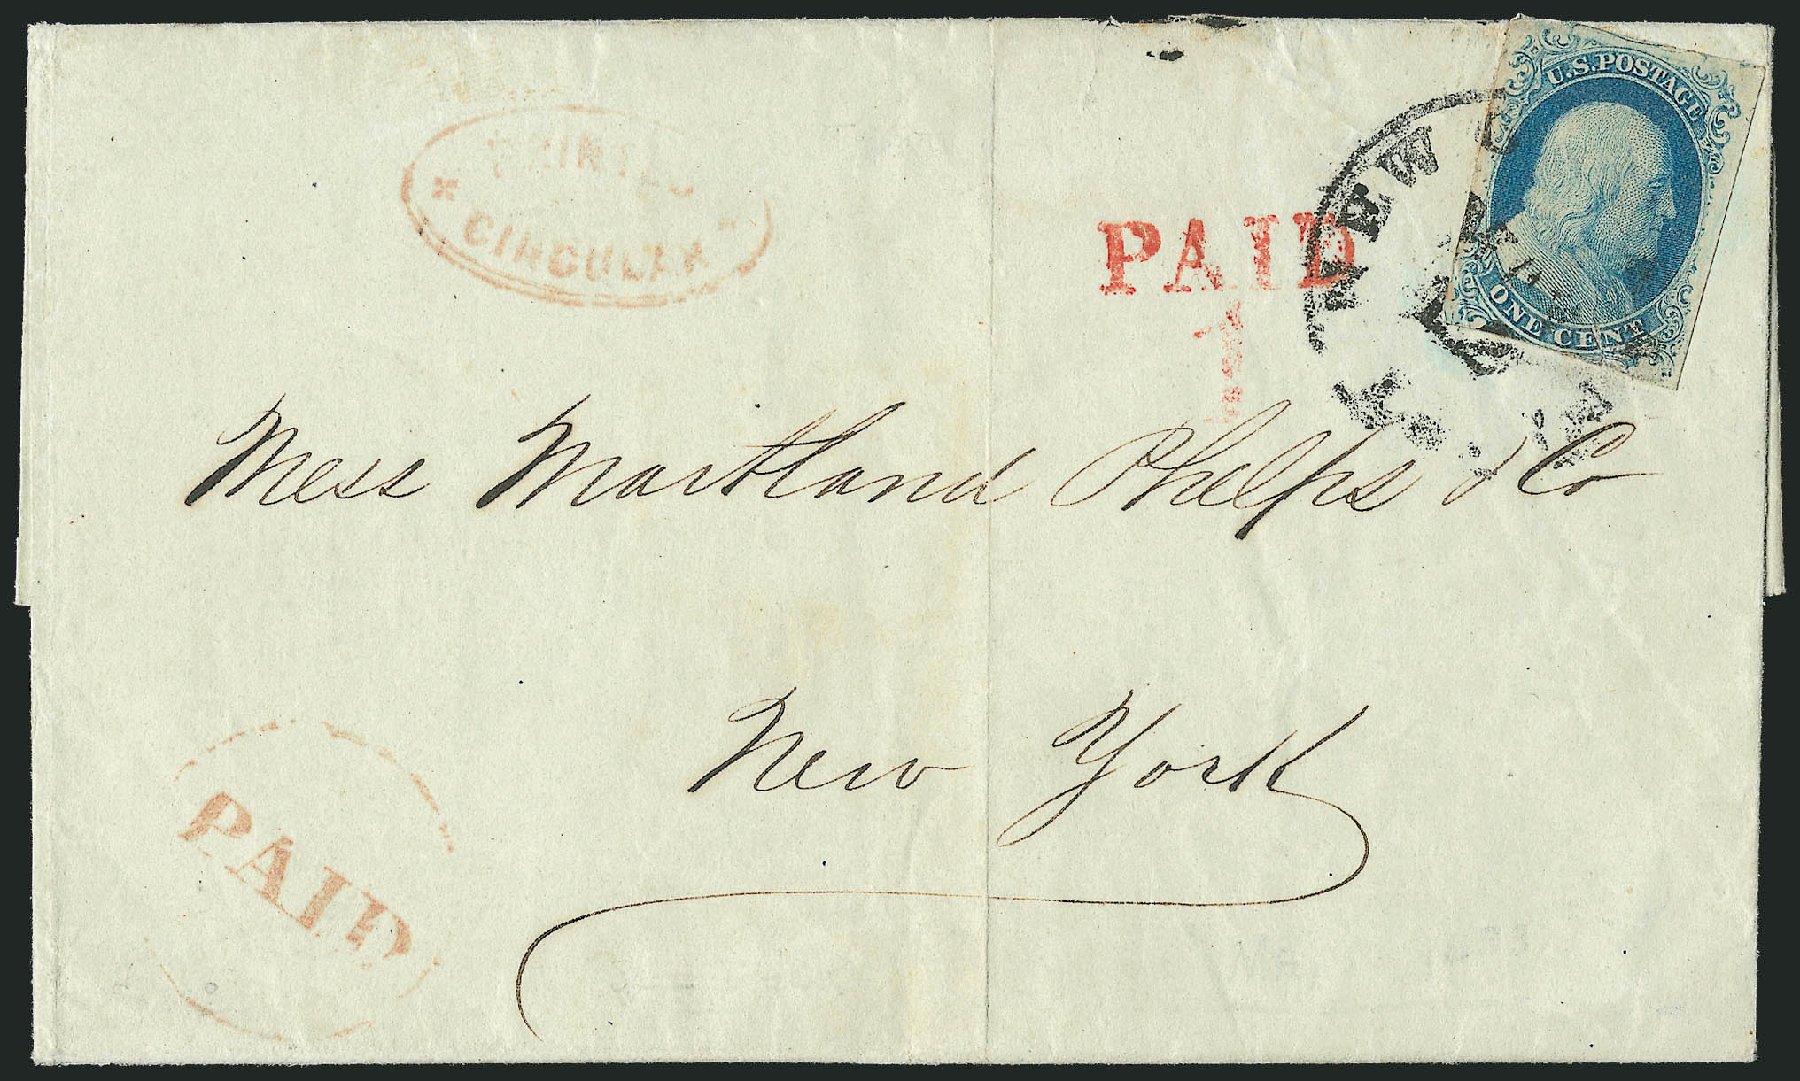 U.S.POSTAGE
ONE CENT
CIRCULAR
PAID
1
NEW
Mess Maitland Phelps & Co
New York
PAID